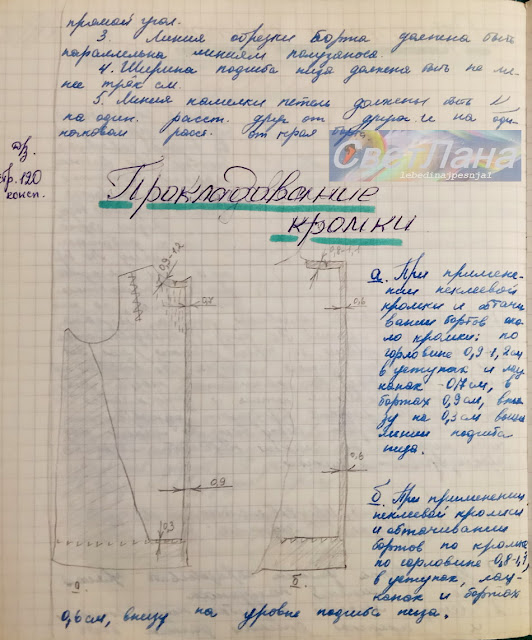 прямой угол.
3. Линия обрезки борта должна быть
параллельна линиям полузаноса.
4. Ширина подгиба низа должна быть не ме-
нее трёх см.
5. Линия намелки петель должны быть
на один. расст. друг от друга и на оди-
наковом расст. от края борта
Д/з.
стр. 120
консп.
СветЛана
lebedinajpesnja1
Прокладование
кромки
0,9-1,2
0,7
0,9
0,3
а
0,8-1,1
0,6
0,6
б
а. При примене-
нии неклеевой
кромки и обтачи
вании бортов око
ло кромки: по
горловине 0,9-1,2см
в уступах и лац
канах - 0,7см, в
бортах 0,9 см, вни
зу на 0,3 см выше
линии подгиба
низа.
б. При применении
неклеевой кромки
и обтачивании
бортов по кромке
по горловине - 0,8-1,1
в уступах, лац-
канах и бортах
0,6 см, внизу на уровне подгиба низа.